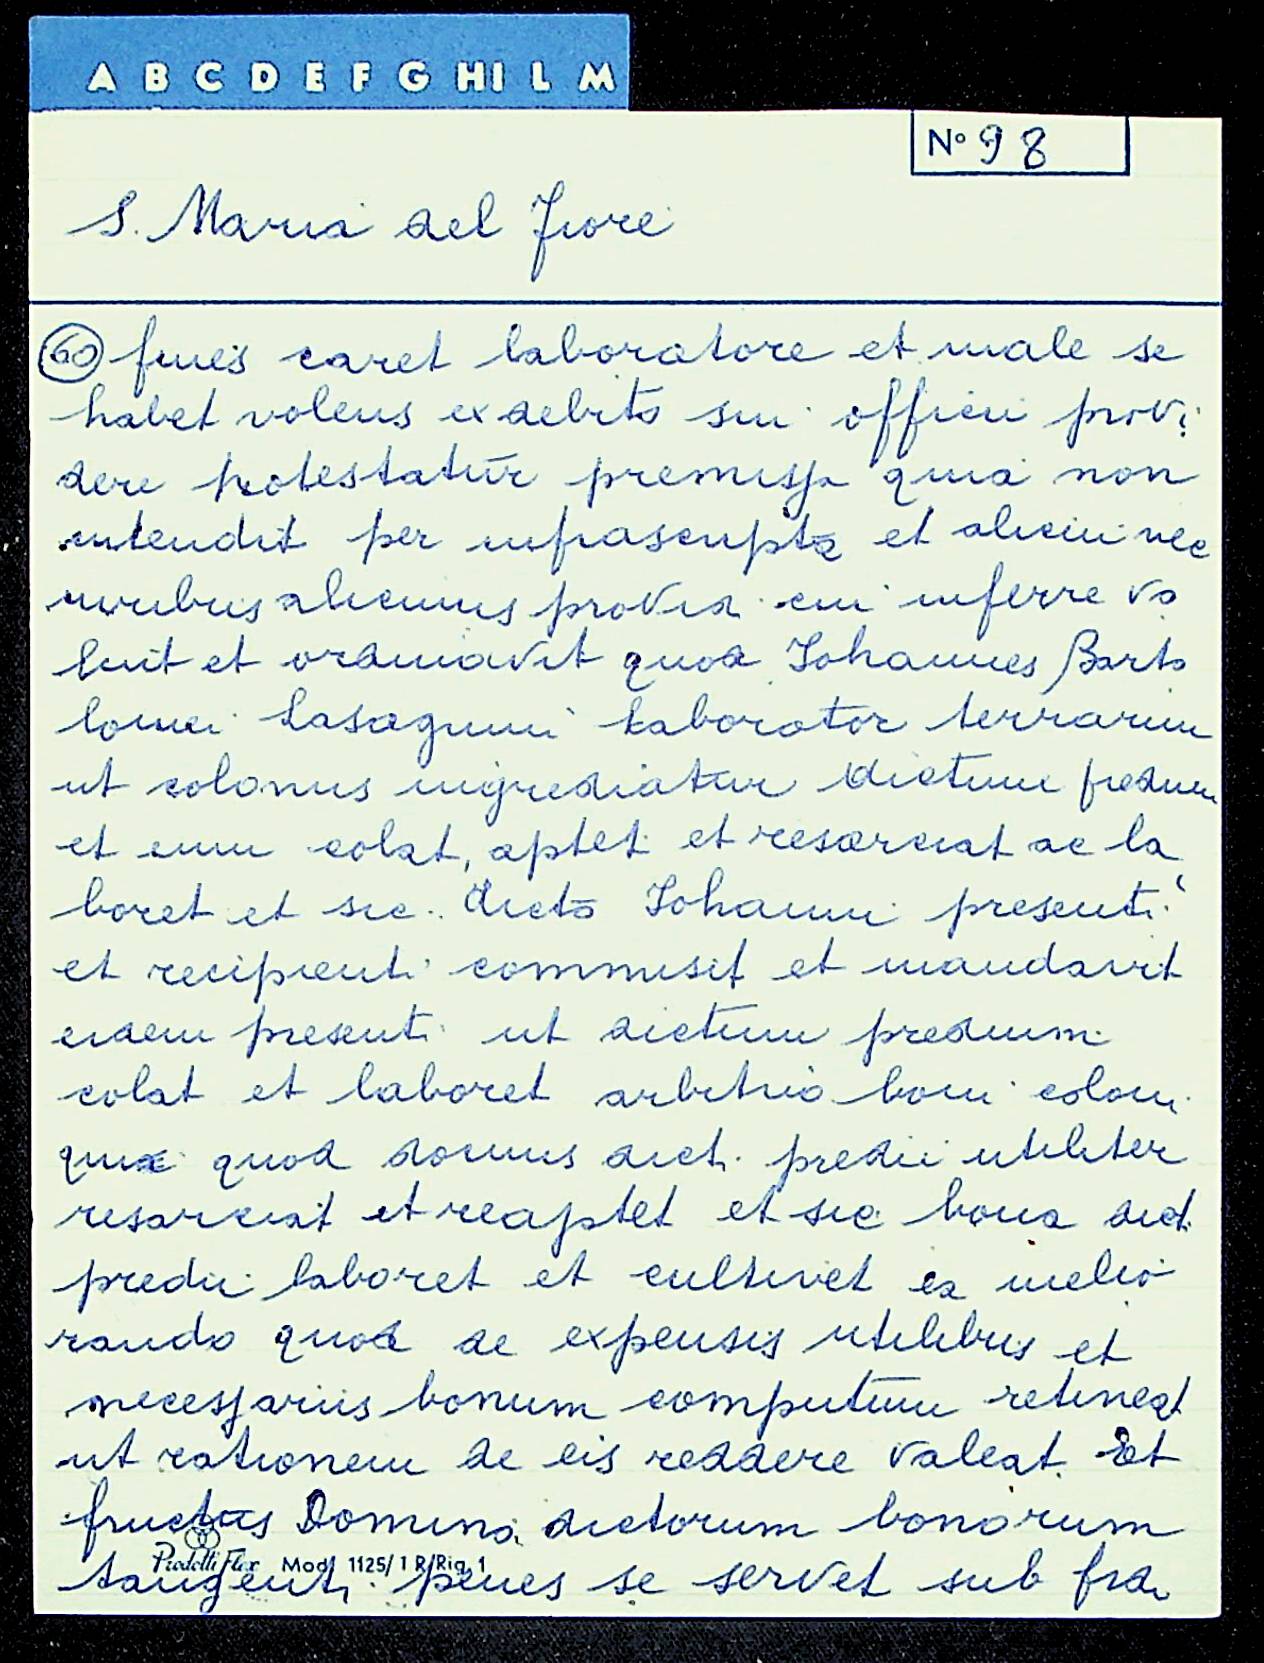 A B C D E F G HI L M
Nº 98
S. Maria del Fiore
60 fines caret laboratore et male se
habet volens ex debito sui officii provi
dere protestatur premissa quia non
intendit per infrascripta et alicui nec
iuribus alicuius provid. cui inferre vo
luit et ordinavit quod Johannes Barto
lomei Lasagnini laborator terrarum
ut colonus ingrediatur dictum predium
et eum colat, aptet et resarciat ac la
boret et sic. dicto Johanni presenti
et recipienti commisit et mandavit
eidem presenti ut dictum predium
colat et laboret arbitrio boni coloni
quod domus dict. predii utiliter
resarciat et reaptet et sic bona dict.
predii laboret et cultivet ea melio
rando quod de expensis utilibus et
necessariis bonum computum retineat
ut rationem de eis reddere valeat. Et
fructus Domino dictorum bonorum
Prodotti Flex Mod. 1125/1 R/Rig. 1
tangenti penes se servet sub fra